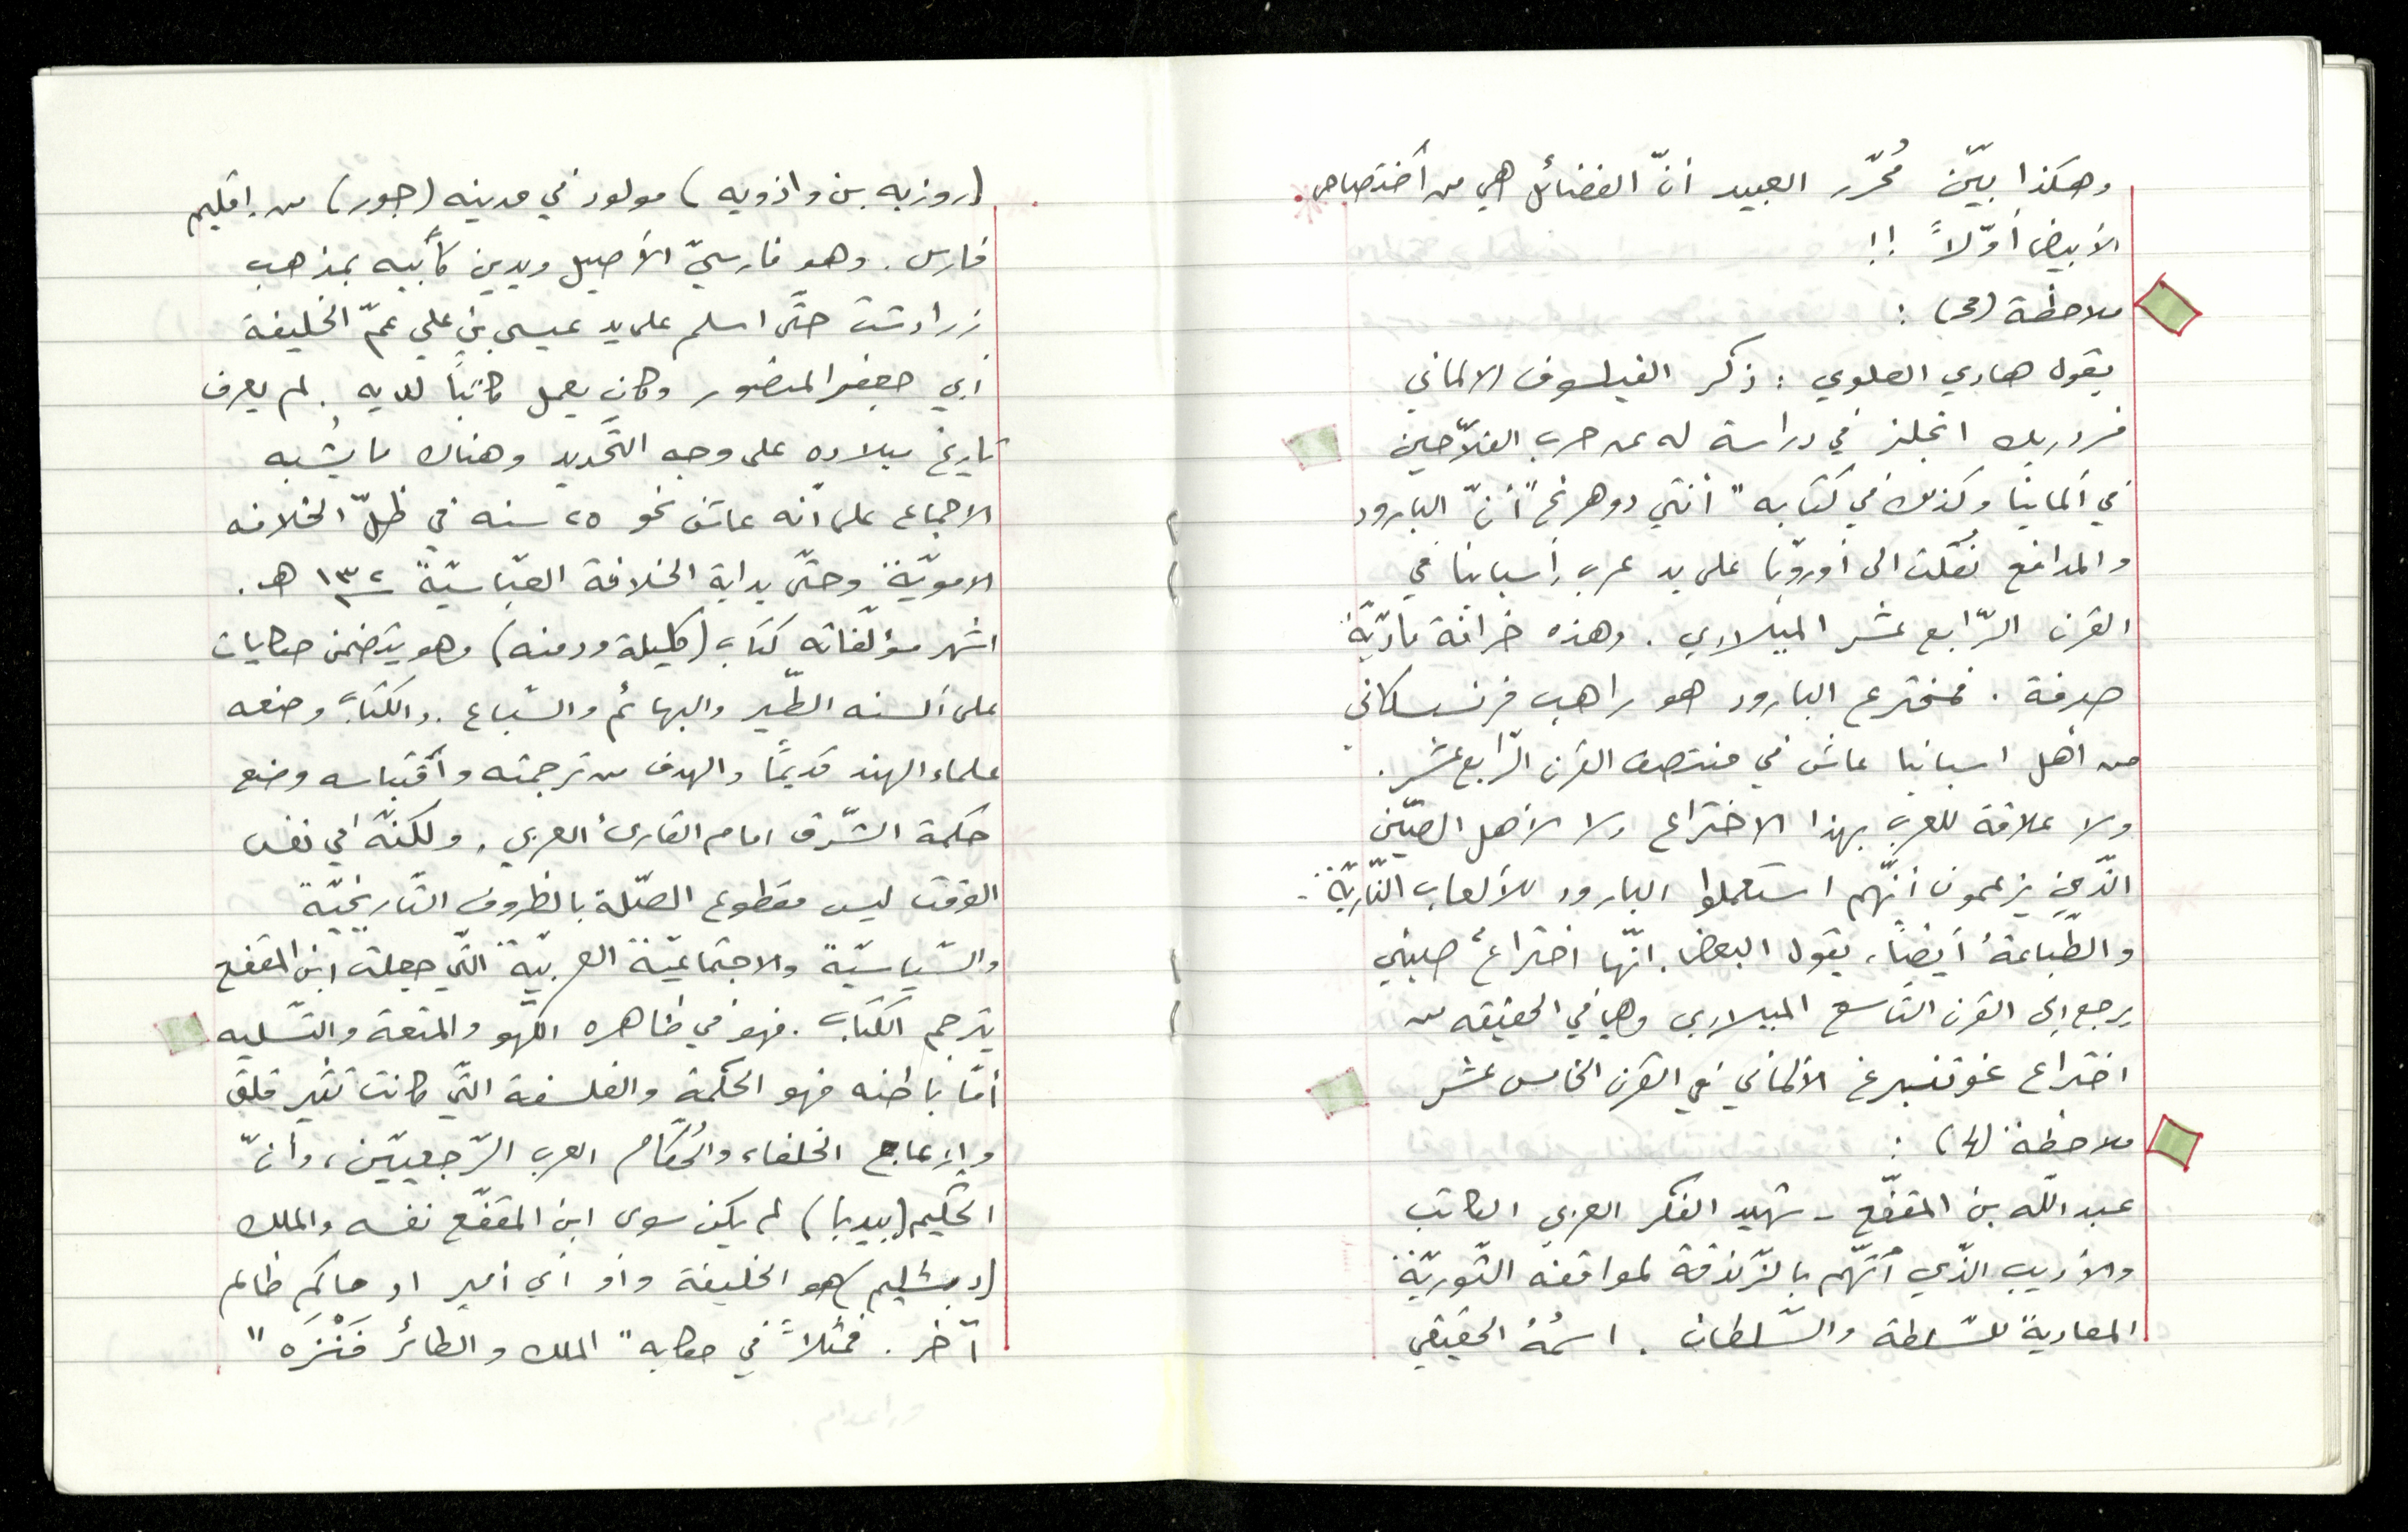 وهكذا بيّن مُحرّر العبيد أنّ الفضائل هي من أختصاص
الأبيض أوّلاً !!
ملاحظة (٣) :
يقول هادي العلوي : ذكر الفيلسوف الالماني
فردريك انجلز في دراسة له عن حرب الفلاّحين
في ألمانيا وكذلك في كتابه " أنتي دوهرنج " أنّ البارود
والمدافع نُقلت الى أوروبّا على يد عرب إسبانيا في
القرن الرّابع عشر الميلادي . وهذه خرافة ماديّة
صرفة . فمخترع البارود هو راهب فرنسسكاني
من أهل اسبانيا عاش في منتصف القرن الرّابع عشر .
ولا علاقة للعرب بهذا الاختراع ولا لأهل الصيّن
الذّين يزعمون أنّهم استعملوا البارود للألعاب النّاريّة .
والطّباعةُ أيضاً ، يقول البعض . انّها اختراعُ صيني
يرجع إلى القرن التاسع الميلادي وهي في الحقيقه من
اختراع غوتنبرغ الألماني في القرن الخامس عشر
ملاحظة (٤) :
عبد اللّه بن المقفّع - شهيد الفكر العربي الكاتب
والأديب الذّي أتّهم بالزّندقة لمواقفه الثّوريّة
المعادية للسّلطة والسّلطان . اسمُهُ الحقيقي
(روزبه بن واذويه) مولود في مدينه (جور) من إقليم
فارس . وهو فارسيّ الأصيل ويدين كأبيه بمذهب
زرادشت حتّى اسلم على يد عيسى بن علي عمّ الخليفة
أبي جعفر المنصور وكان يعمل كاتباً لديه . لم يعرف
تاريخ ميلاده على وجه التّحديد وهناك ما يُشبه
الاجماع على أنّه عاش نحو ٢٥ سنه في ظلّ الخلافه
الامويّة وحتّى بداية الخلافة العبّاسيّة ١٣٢ هـ .
اشهر مؤلّفاته كتاب (كليلة ودمنه) وهو يتضمن حكايات
على ألسنه الطّير والبهائم والسّباع . والكتاب وضعه
علماء الهند قديمًا والهدف من ترجمته وأقتباسه وضع
حكمة الشّرق امام القارئ العربي . ولكنّه في نفس
الوقت ليس مقطوع الصّلة بالظروف التّاريخيّة
والسّياسيّة والاجتماعيّة العربيّة التّي جعلت ابن المقفع
يترجم الكتاب . فهو في ظاهره اللّهو والمتعة والتسّليه
أمّا باطنه فهو الحكمة والفلسفة التّي كانت تثير قلق
وإزعاج الخلفاء والحُكّام العرب الرّجعييّن ، وأنّ
الحكيم (بيدبا) لم يكن سوى ابن المقفّع نفسه والملك
(دبشليم) هو الخليفة وأو أي أمير او حاكم ظالم
آخر . فمثلاً في حكايه " الملك والطائر فَنْزَه "